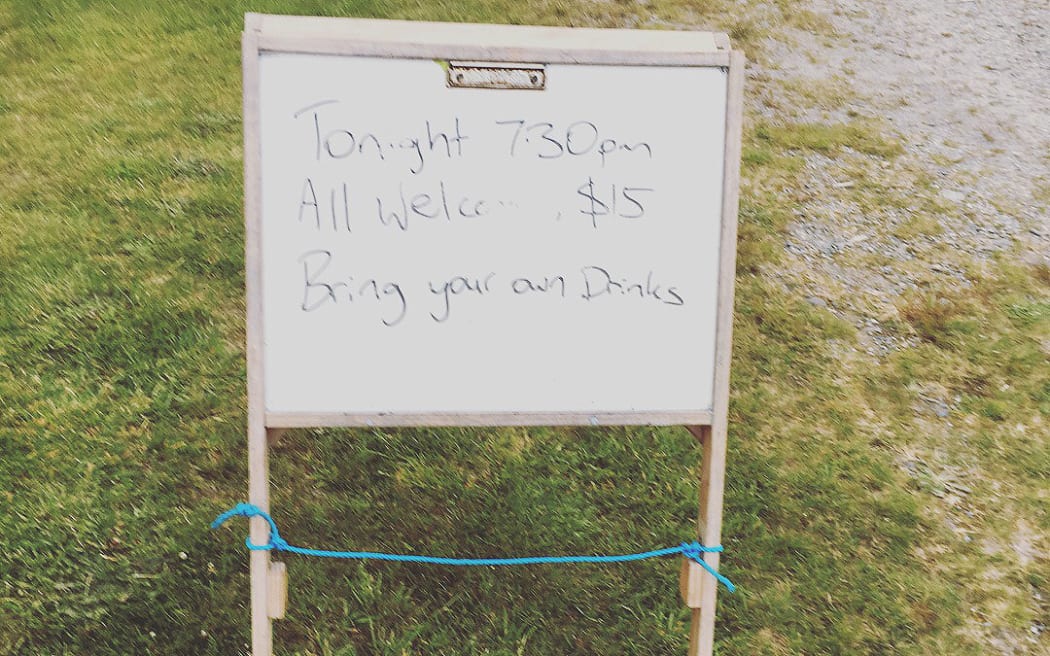 Tonight 7.30pm
All Welco $15
Bring your own Drinks